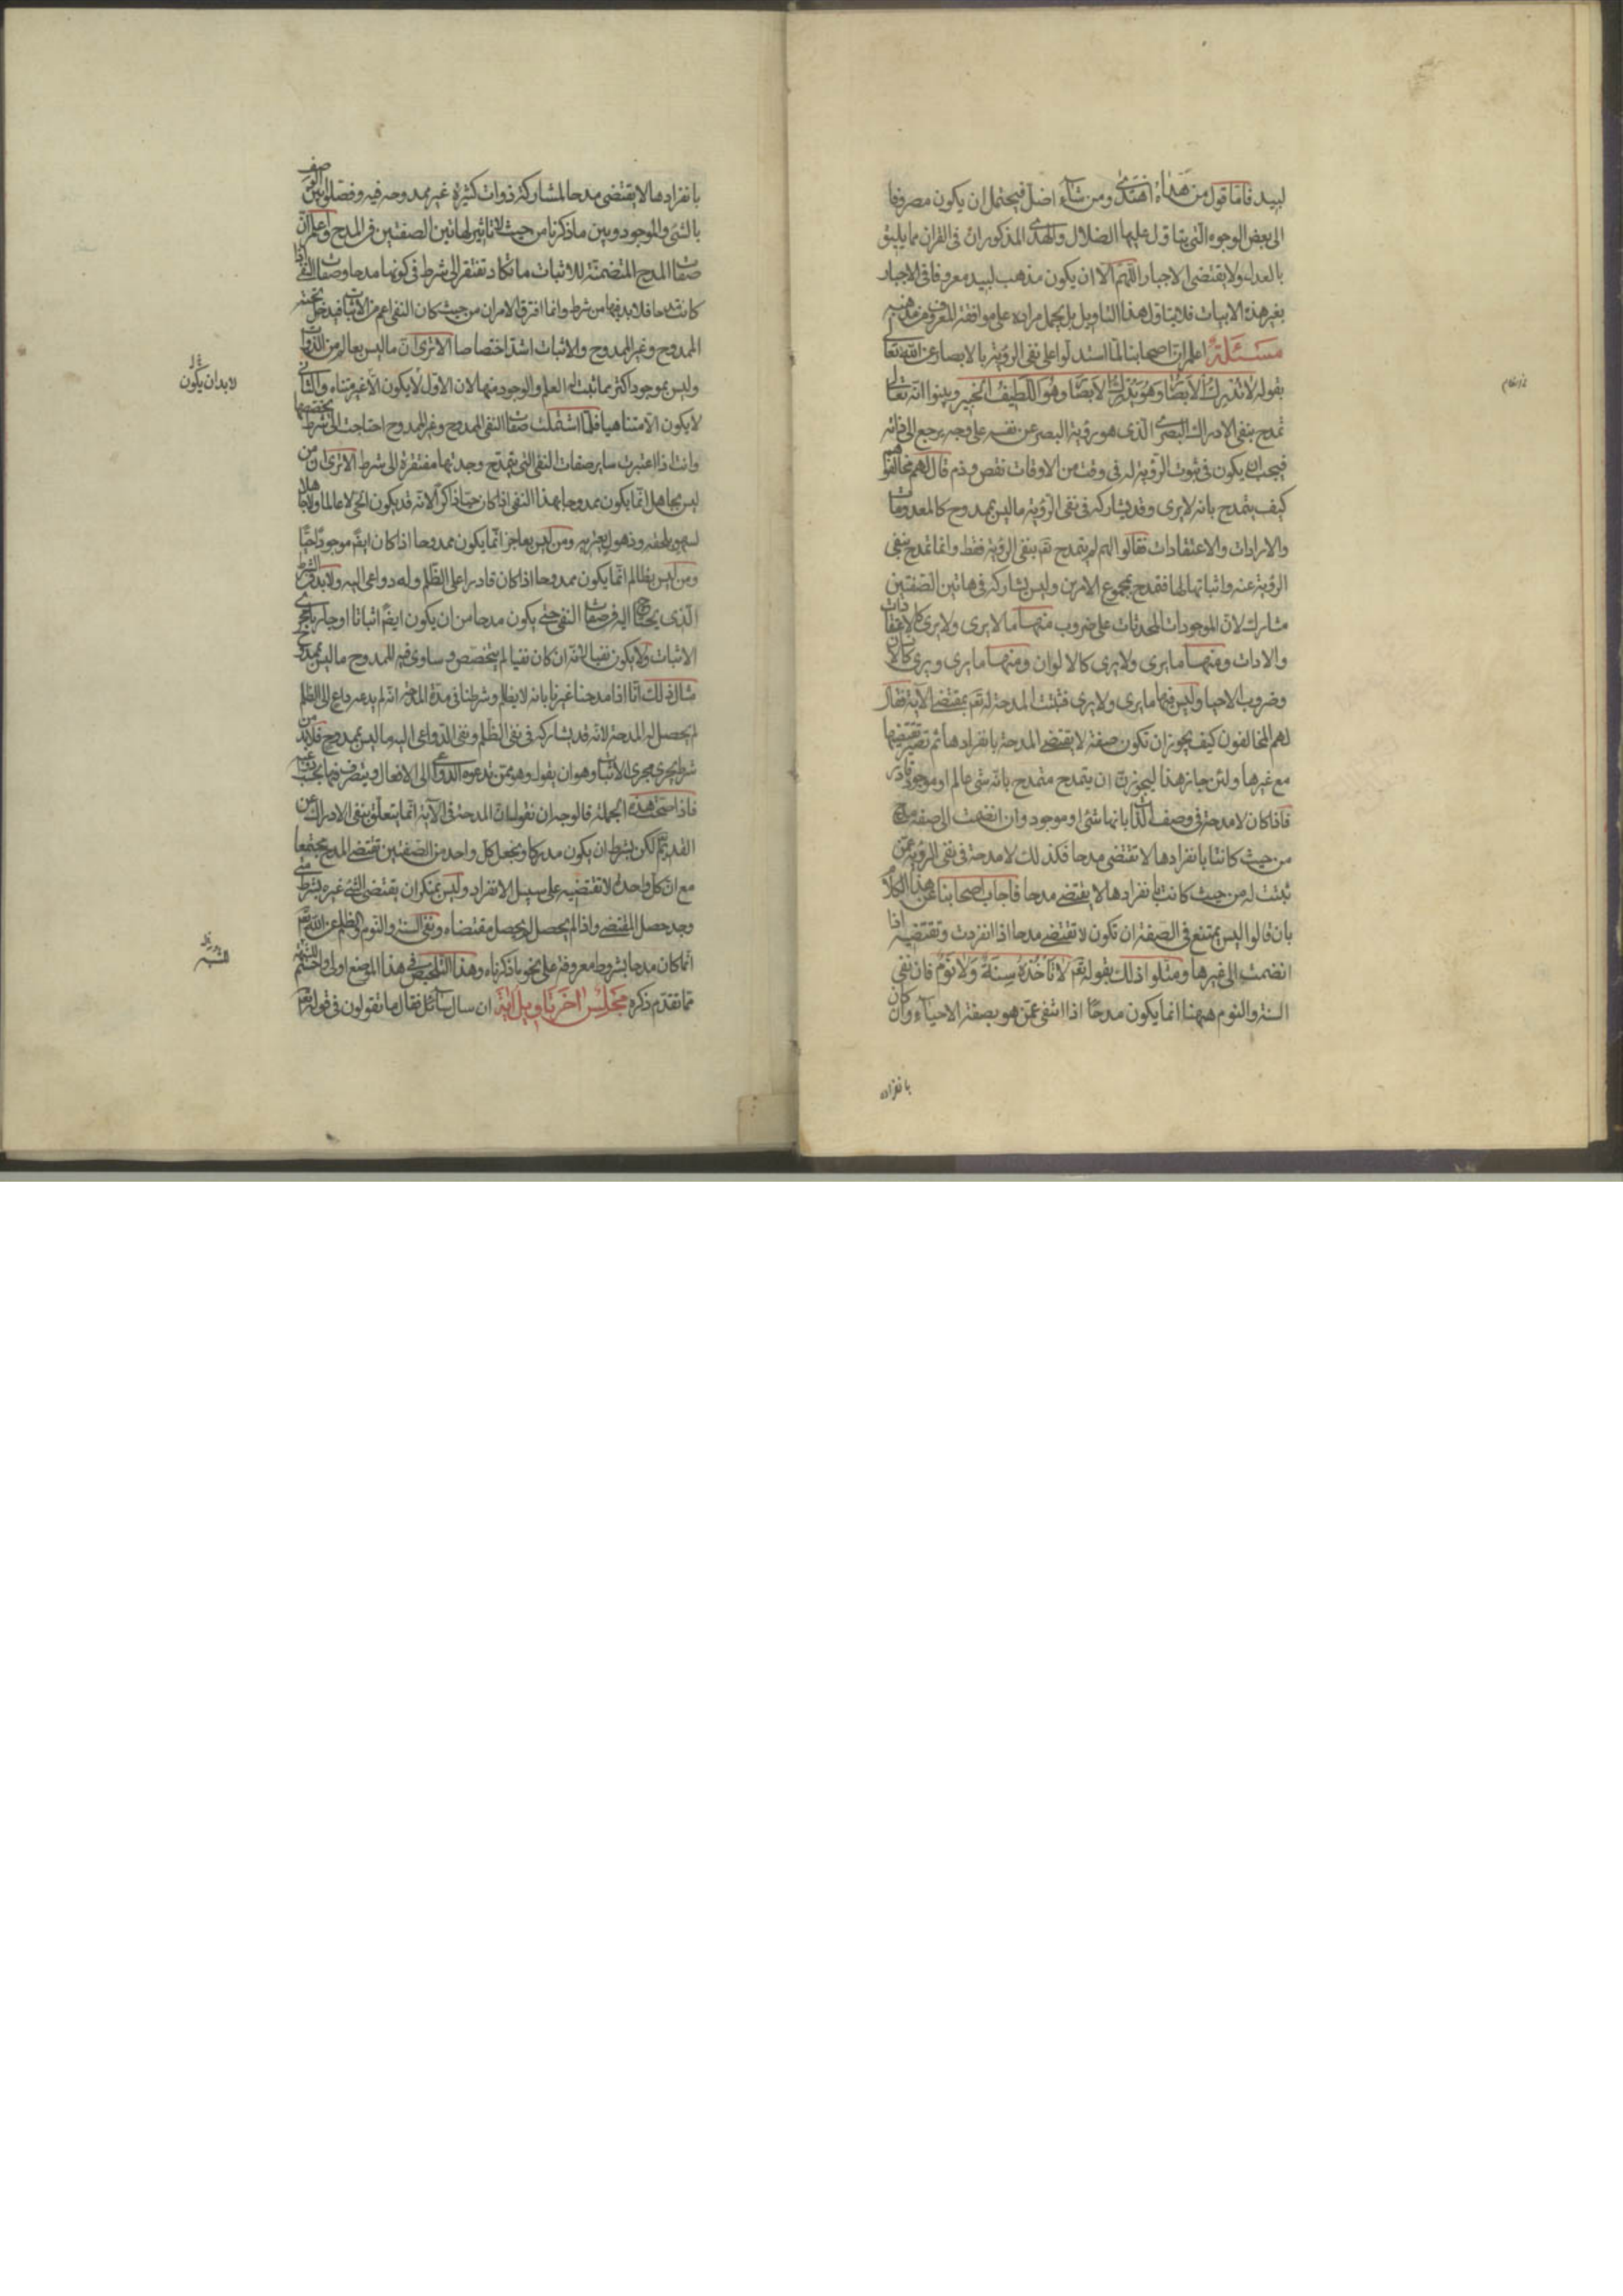 لبيد فاما قول من هداه اهتدى ومن شاء اضل فيحتمل ان يكون مصروفا
الى بعض الوجوه التى يتاول عليها الضلال والهدى المذكوران فى القران مما يليق
بالعدل ولا يقتضى الاجبار اللهم الا ان يكون مذهب لبيد معروفا فى الاجبار
بغير هذه الابيات فلا يتاول هذا التاويل بل يحمل مراده على موافقة المعروف من مذهبه
مسئلة اعلم ان اصحابنا لما استدلوا على نفى الرؤية بالابصار عن الله تعالى
بقوله لا تدركه الابصار وهو يدرك الابصار وهو اللطيف الخبير وبينوا انه تعالى
تمدح بنفى الادراك البصرى الذى هو رؤية البصر عن نفسه على وجه يرجع الى ذاته
فيجب ان يكون فى ثبوت الرؤية له فى وقت من الاوقات نقص وذم قال لهم مخالفوهم
كيف يتمدح بانه لا يرى وقد يشاركه فى نفى الرؤية ما ليس بممدوح كالمعدومات
والارادات والاعتقادات فقالوا لهم لم يتمدح تعم بنفى الرؤية فقط وانما تمدح بنفى
الرؤية عنه واثباتها لها فتمدح بمجموع الامرين وليس يشاركه فى هاتين الصفتين
مشارك لان الموجودات المحدثات على ضروب منها ما لا يرى ولا يرى كالاعتقادات
والارادات ومنها ما يرى ولا يرى كالالوان ومنها ما يرى ويرى كالانسان
وضروب الاحياء وليس فيها ما يرى ولا يرى فثبتت المدحة له تعم بمقتضى الاية فقال
لهم المخالفون كيف يجوز ان تكون صفة لا يقتضى المدحة بانفرادها ثم تصير تقتضيها
مع غيرها ولئن جاز هذا ليجوزن ان يتمدح متمدح بانه شىء عالم او موجود قادر
فاذا كان لا مدحة فى وصف الذات بانها شىء او موجود وان انضمت الى صفة مدح
من حيث كانتا بانفرادها لا تقتضى مدحا فكذلك لا مدحة فى نفى الرؤية عمن
ثبتت له من حيث كانت بانفرادها لا يقتضى مدحا فاجاب اصحابنا عن هذا الكلام
بان قالوا ليس يمتنع فى الصفة ان تكون لا تقتضى مدحا اذا انفردت وتقتضيه اذا
انضمت الى غيرها ومثلوا ذلك بقوله تعم لا تاخذه سنة ولا نوم فان نفى
السنة والنوم ههنا انما يكون مدحا اذا انتفى عمن هو بصفة الاحياء وان كان
بانفراده
بانفرادها لا يقتضى مدحا لمشاركة ذوات كثيرة غير ممدوحة فيه وفصلوا بين الوصف
بالشىء والموجود وبين ما ذكرنا من حيث لا تاثير لهاتين الصفتين فى المدح واعلم ان
صفات المدح المتضمنة للاثبات ما تكاد تفتقر الى شرط فى كونها مدحا وصفات النفى اذا
كانت مدحا فلا بد فيها من شرط وانما افترق الامران من حيث كان النفى اعم من الاثبات فيدخل تحته
الممدوح وغير الممدوح والاثبات اشد اختصاصا الا ترى ان ما ليس بعالم من الذوات
وليس بموجود اكثر مما ثبت له العلم والوجود منها لان الاول لا يكون الا غير متناه والثانى
لابد ان يكون
لا يكون الا متناهيا فلما اشتملت صفات النفى الممدوح وغير الممدوح احتاجت الى شرط يخصصها
وانت اذا اعتبرت ساير صفات النفى التى يتمدح وجدتها مفتقرة الى شرط الا ترى ان من
ليس بجاهل انما يكون ممدوحا بهذا النفى اذا كان حيا ذاكرا لانه قد يكون الحى لا عالما ولا جاهلا
لسهو يلحقه وذهول يعتريه ومن ليس بعاجز انما يكون ممدوحا اذا كان ايضم موجودا حيا
ومن ليس بظالم انما يكون ممدوحا اذا كان قادرا على الظلم وله دواعى اليه ولابد فى الشرط
الذى يحتاج اليه فى صفات النفى حتى يكون مدحا من ان يكون ايضم اثباتا او جاريا مجرى
الاثبات ولا يكون نفيا لانه ان كان نفيا لم يتخصص وساوى فيه للممدوح ما ليس بممدوح
مثال ذلك انا اذا مدحنا غيرنا بانه لا يظلم وشرطنا فى هذه المدحة انه لم يدعه داع الى الظلم
لم يحصل له المدحة لانه قد يشاركه فى نفى الظلم ونفى الدواعى اليه ما ليس بممدوح فلابد من
شرط يجرى مجرى الاثبات وهو ان يقول وهو ممن تدعوه الدواعى الى الافعال ويتصرف فيها بحسب دواعيه
فاذا صحت هذه الجملة فالوجه ان نقول ان المدحة فى الاية انما يتعلق بنفى الادراك عن
القديم تعم لكن بشرط ان يكون مدركا ونجعل كل واحد من الصفتين تقتضى المدح مجتمعا
مع ان كل واحدة لا تقتضيه على سبيل الانفراد وليس بمنكر ان يقتضى الشىء غيره بشرط متى
وجد حصل المقتضى واذا لم يحصل لم يحصل مقتضاه ونفى السنة والنوم والظلم عن الله تعم
انما كان مدحا بشروط معروفة على نحو ما ذكرناه وهذا التلخيص فى هذا الموضع اولى واحسم للشبهة
مما تقدم ذكره مجلس اخر تاويل اية ان سال سائل فقال ما تقولون فى قوله تعم